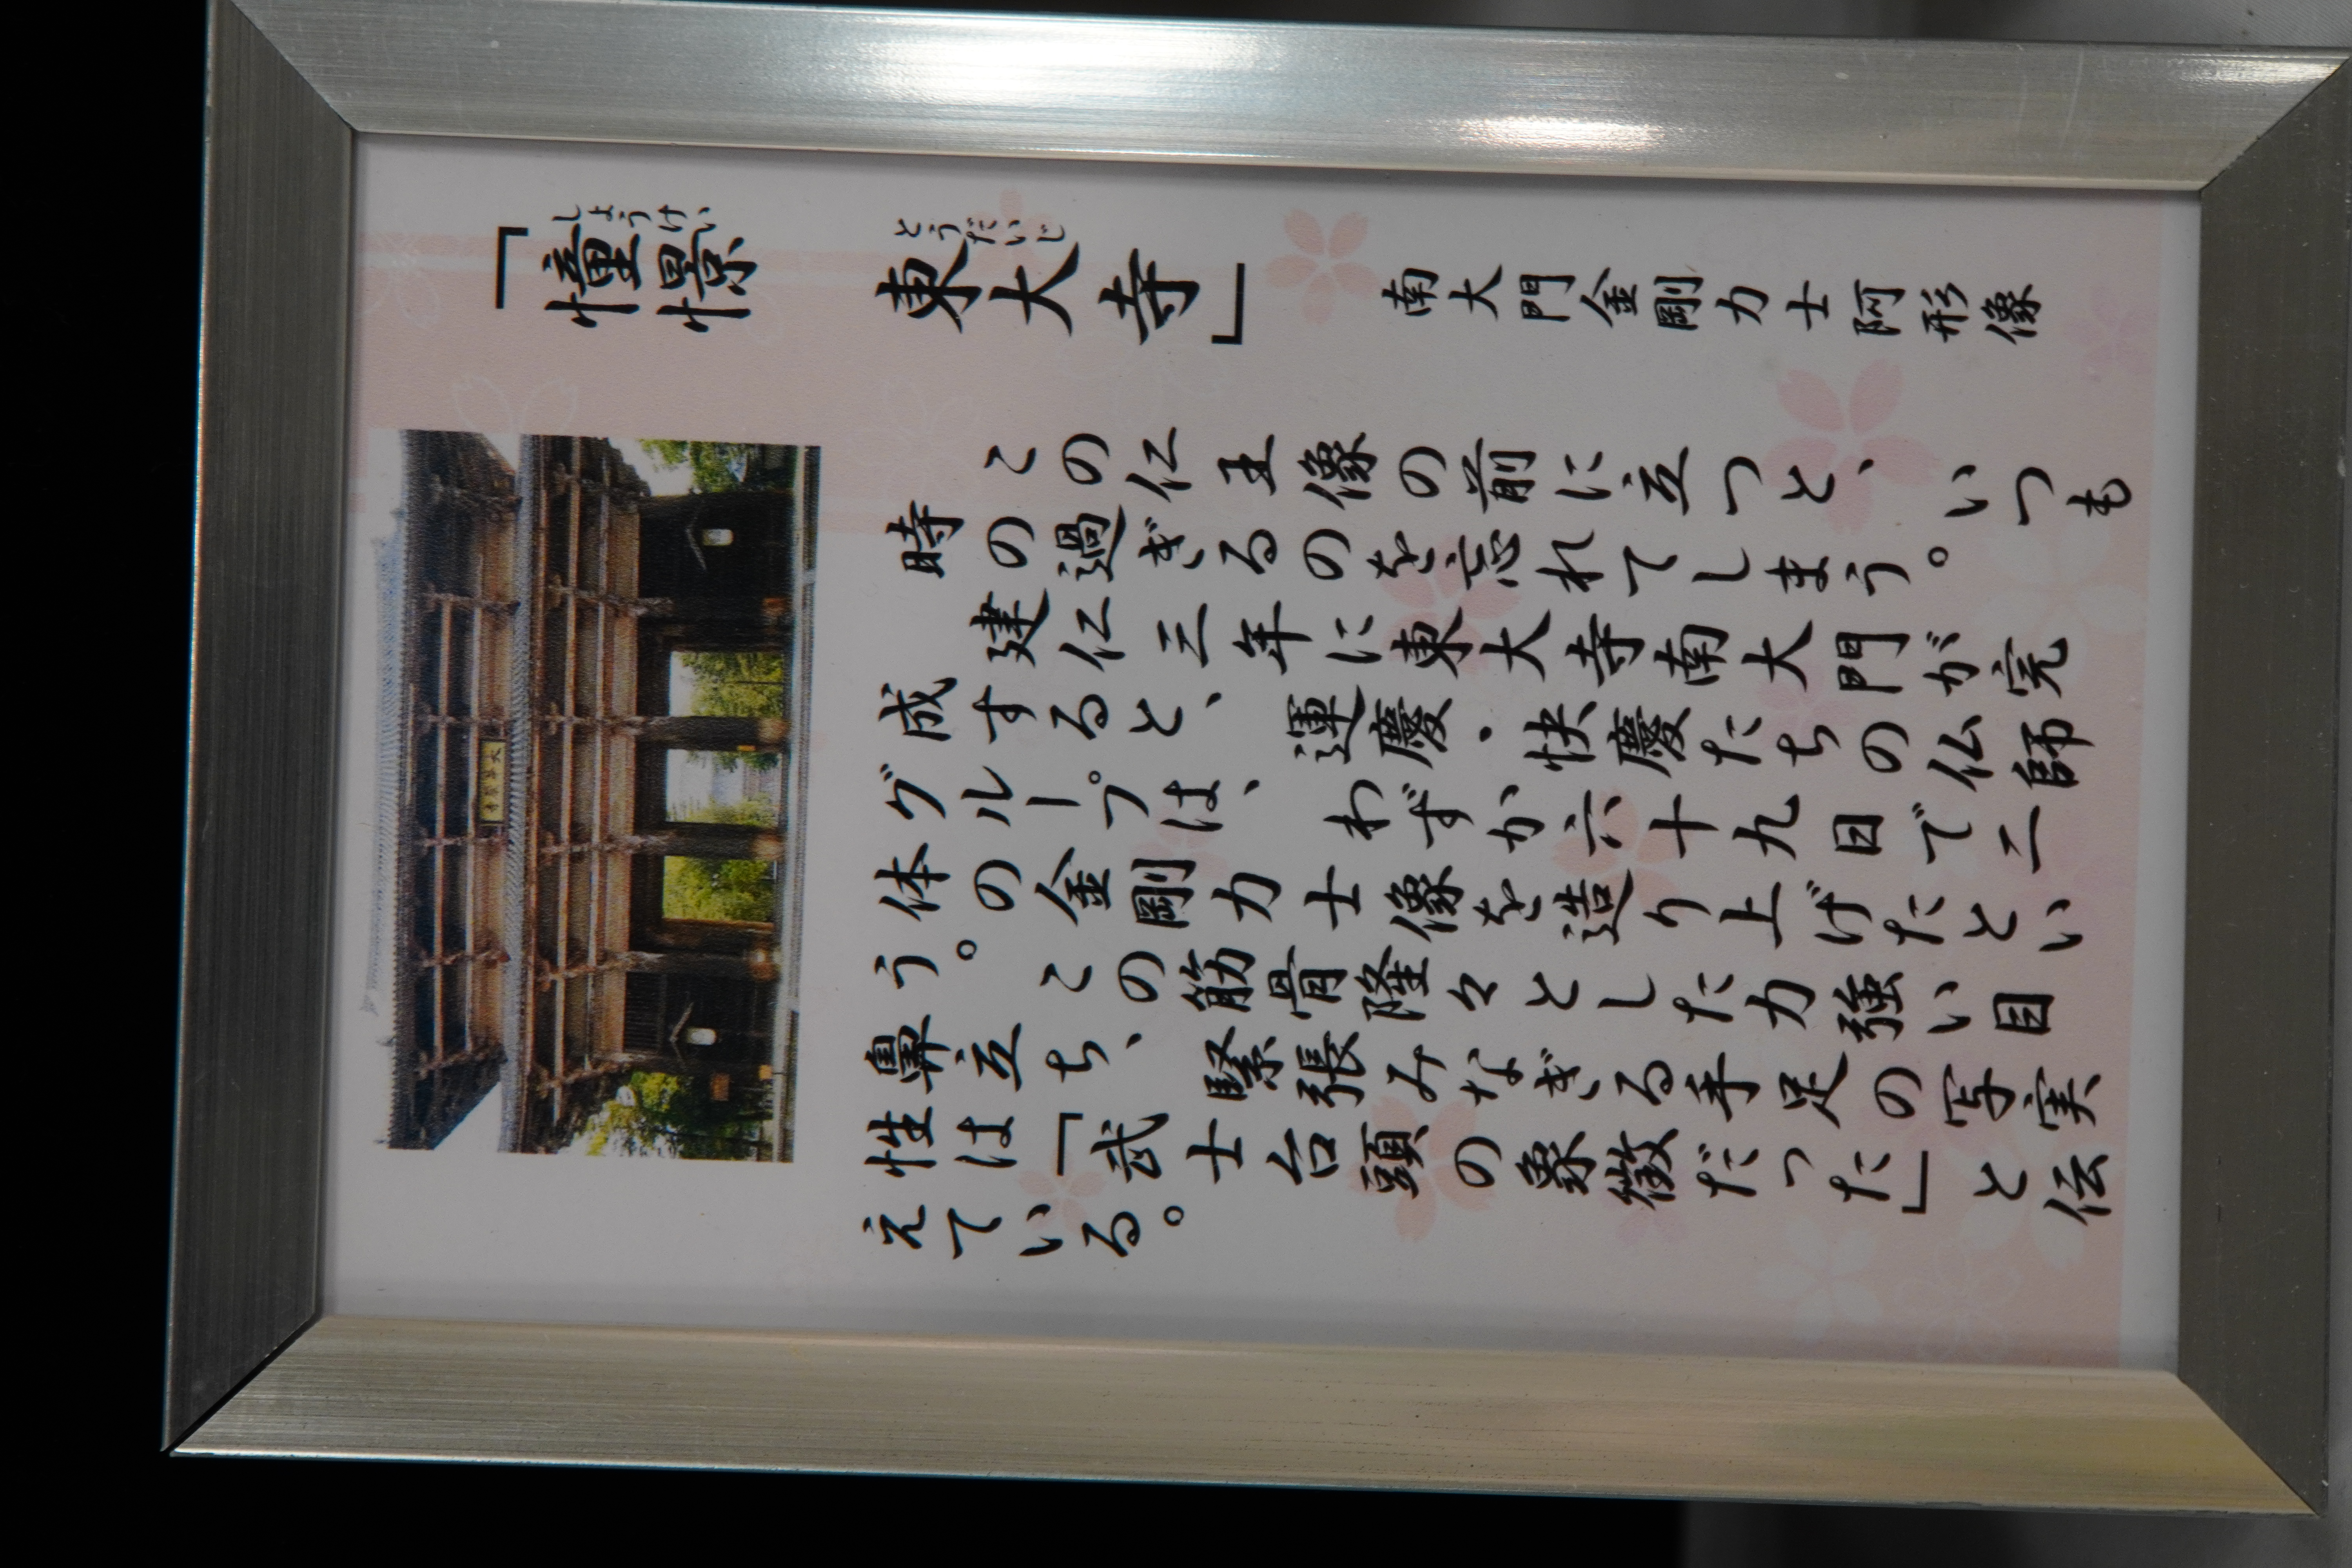 「憧憬 東大寺」 南大門金剛力士阿形像
しょうけい とうだいじ
この仁王像の前に立つと、いつも
時の過ぎるのを忘れてしまう。
建仁三年に東大寺南大門が完
成すると、運慶・快慶たちの仏師
グループは、わずか六十九日で二
体の金剛力士像を造り上げたとい
う。この筋骨隆々とした力強い目
鼻立ち、緊張みなぎる手足の写実
性は「武士台頭の象徴だった」と伝
えている。
大華厳寺